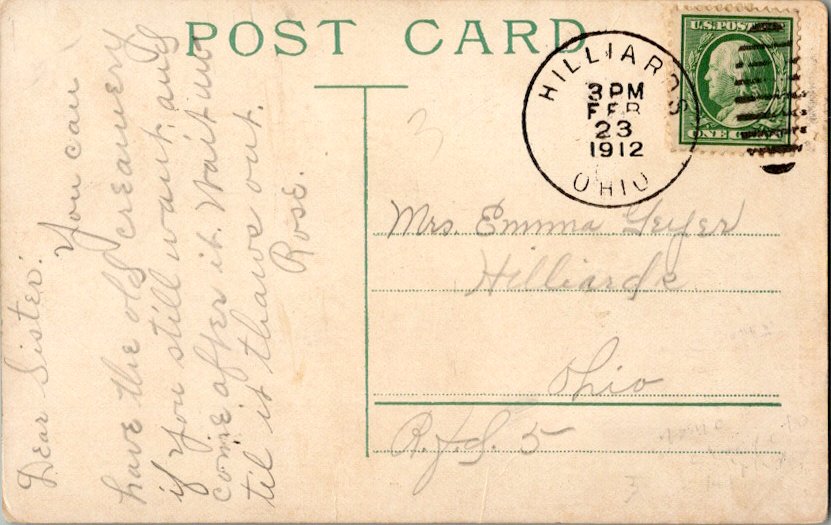 POST CARD
U.S. POST
ONE
HILLIARDS
3 PM
FEB
23
1912
OHIO
Dear Sister:
You can
have the old creamery
if you still want and
come after it. Wait
til it thaws out.
Rose.
Mrs. Emma Geyer
Hilliards
Ohio
R.F.D. 5